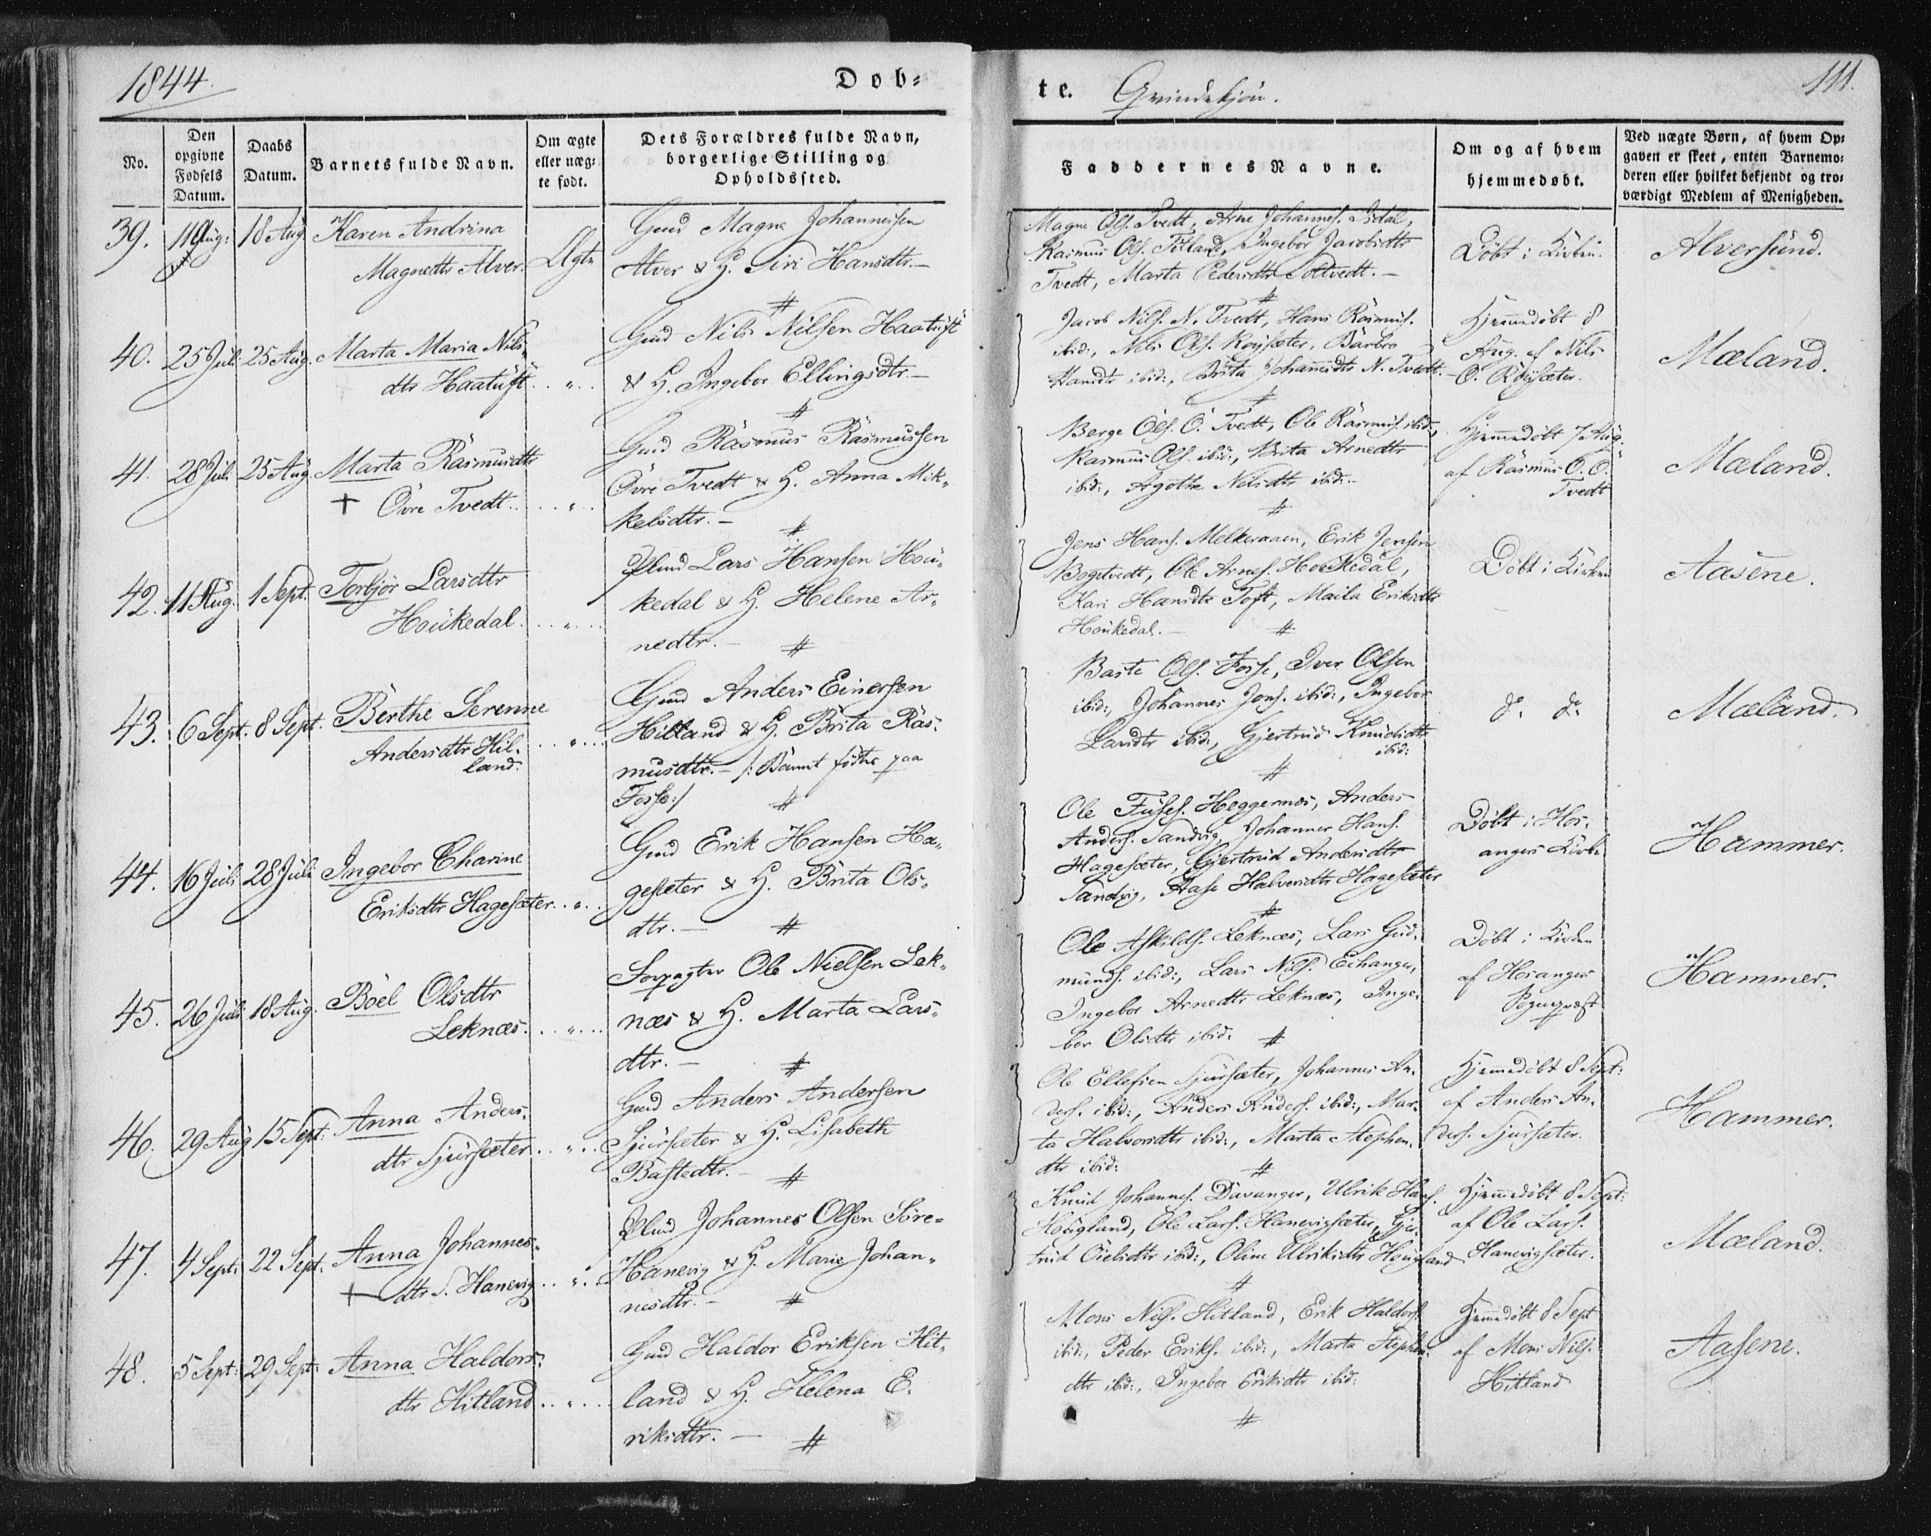 1844.
Døb-
te. Qvindekjøn.
111.
No.
Den opgivne Fødsels Datum.
Daabs Datum.
Barnets fulde Navn.
Om ægte eller uægte født.
Dets Forældres fulde Navn, borgerlige Stilling og Opholdssted.
Faddernes Navne.
Om og af hvem hjemmedøbt.
Ved uægte Børn, af hvem Opgaven er skeet, enten Barnemoderen eller hvilket bekjendt og troværdigt Medlem af Menigheden.
39. Aug: 18 Aug. Karen Andrina
Magnedtr Alver. Ægte
Gmd Magne Johannessen
Alver & H. Siri Hansdtr. —
Magne Ols. Tvedt, Arne Johannes. Isdal,
Rasmus Ols. Titland, Ingebor Jacobsdtr
Tvedt, Marta Pedersdtr Toltvedt. —
Døbt i Kirken.
Alversund.
40. 25 Juli 25 Aug. Marta Maria Nils-
dtr Haatuft . . „ . .
Gmd Nils Nilsen Haatuft
& H. Ingebor Ellingsdtr. —
Jacob Nils. N. Tvedt, Hans Rasmus.
ibid:, Nils Ols. Røysæter, Barbro
Hansdtr ibid:, Brita Johannesdtr N. Tvedt. —
Hjemmedøbt 8
Aug. af Nils
O. Røysæter.
Mæland.
41. 28 Juli 25 Aug. Marta Rasmusdtr
† Øvre Tvedt . . „ .
Gmd Rasmus Rasmussen
Øvre Tvedt & H. Anna Mik-
kelsdtr. —
Berge Ols. Ö. Tvedt, Ole Rasmus. ibid:,
Rasmus Ols. ibid:, Brita Arnedtr
ibid:, Agothe Nilsdtr ibid: —
Hjemmedøbt 7 Aug.
af Rasmus O. Ö.
Tvedt
Mæland.
42. 11 Aug. 1 Sept. Torbjør Larsdtr
Houkedal. . . „ . .
Lars Hansen Hou-
kedal & H. Helene Ar-
nedtr. —
Jens Hans. Melkeraaen, Erik Jensen
Bogetvedt, Ole Arnes. Houkedal,
Kari Hansdtr Toft, Maila Eriksdtr
Houkedal. —
Døbt i Kirken
Aasene.
43. 6 Sept. 8 Sept. Berthe Serenne
Andersdtr Hil-
land. . . „ . .
Gmd Anders Einersen
Hilland & H. Brita Ras-
musdtr. — /: Barnet fødtes paa
Fosse :/
Baste Ols. Fosse, Iver Olsen
ibid:, Johannes Jons. ibid:, Ingebor
Larsdtr ibid:, Gjertrud Knudsdtr
ibid:
do. do.
Mæland.
44. 16 Juli 28 Juli Ingebor Tharine
Eriksdtr Hagesæter . . „ . .
Gmd Erik Hansen Ha-
gesæter & H. Brita Ols-
dtr. —
Ole Fuses. Heggernæs, Anders
Anders. Sandvig, Johannes Hans.
Hagesæter, Gjertrud Andersdtr
Sandvig, Aase Halversdtr Hagesæter
Døbt i Hos-
angers Kirke
Hammer.
45. 26 Juli 18 Aug. Böel Olsdtr
Leknæs. . . „ . .
Forpagter Ole Nielsen Lek-
næs & H. Marta Lars-
dtr. —
Ole Askilds. Leknæs, Lars Gud-
munds. ibid:, Lars Nils. Eihanger,
Ingebor Arnedtr Leknæs, Inge-
bor Olsdtr ibid:
Døbt i Kirken
af Hosangers
Sognepræst
Hammer.
46. 29 Aug 15 Sept: Anna Anders-
dtr Sjursæter . . „ . .
Gmd Anders Andersen
Sjursæter & H. Lisabeth
Bastedtr. —
Ole Ellefsen Sjursæter, Johannes An-
ders. ibid:, Anders Anders. ibid:, Mar-
ta Halvorsdtr ibid:, Marta Stephen-
dtr ibid:
Hjemmedøbt 8 Sept:
af Anders An-
ders. Sjursæter.
Hammer.
47. 4 Sept: 22 Sept: Anna Johannes-
† dtr S. Hanevig . . „ . .
Johannes Olsen Søre-
Hanevig & H. Marie Johan-
nesdtr. —
Knud Johannes. Davanger, Ulrik Hans.
Hougland, Ole Lars. Hanevigsæter, Gjer-
trud ibid:, Oline Ulriksdtr Hougland
Hjemmedøbt 8 Sept:
af Ole Lars.
Hanevigsæter.
Mæland.
48. 5 Sept: 29 Sept: Anna Haldors-
dtr Hitland . . „ . .
Gmd Haldor Eriksen Hit-
land & H. Helena E-
riksdtr. —
Mons Nils. Hitland, Erik Haldors.
ibid:, Peder Eriks. ibid:, Marta Stephen-
dtr ibid:, Ingebor Eriksdtr ibid:
Hjemmedøbt 8 Sept
af Mons Nils.
Hitland
Aasene.